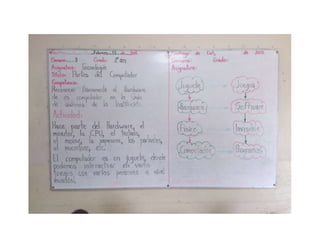 Febrero
Semana: 3 Grado: 2°
Asignatura: Tecnología
Título: Partes del Computador
Competencia:
Reconocer físicamente el Hardware
de un computador en la
de sistemas de la Institución.
Actividad:
Hace parte del Hardware, el
monitor, la CPU, el teclado,
el mouse, la impresora, los parlantes,
el micrófono, etc.
El computador es un juguete, donde
podemos interactuar en varios
juegos con varias personas a nivel
mundial.
Santiago de Cali, de
Semana: Grado:
Asignatura:
Juguete Juegos
Hardware Software
Físico Invisible
Computador Programas